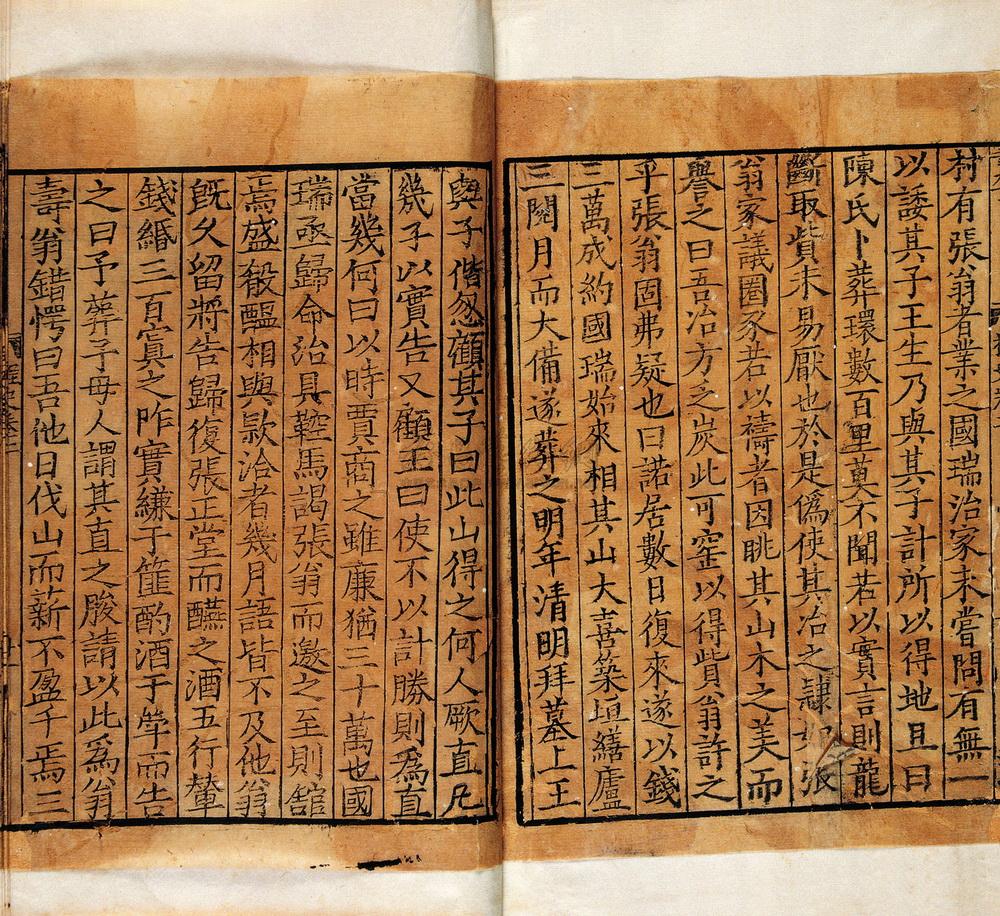 村有張翁者業之國瑞治家未嘗問有無一
以諉其子王生乃與其子計所以得地且曰
陳氏卜葬環數百里莫不聞若以實言則龍
斷取貲未易厭也於是僞使其冶之隸如張
翁家議圈豕若以禱者因眺其山木之美而
譽之曰吾冶方乏炭此可窑以得貲翁許之
乎張翁固弗疑也曰諾居數日復來遂以錢
三萬成約國瑞始來相其山大喜築垣繕廬
三閱月而大備遂葬之明年清明拜墓上王
與子偕忽顧其子曰此山得之何人厥直凡
幾子以實告又顧王曰使不以計勝則爲直
當幾何曰以時賈商之雖廉猶三十萬也國
瑞亟歸命治具鞚馬謁張翁而邀之至則館
焉盛殽醖相與欵洽者幾月語皆不及他翁
旣久留將告歸復張正堂而醼之酒五行輦
錢緡三百寘之阼實縑于篚酌酒于斝而告
之曰予葬予母人謂其直之朘請以此爲翁
壽翁錯愕曰吾他日伐山而薪不盈千焉三